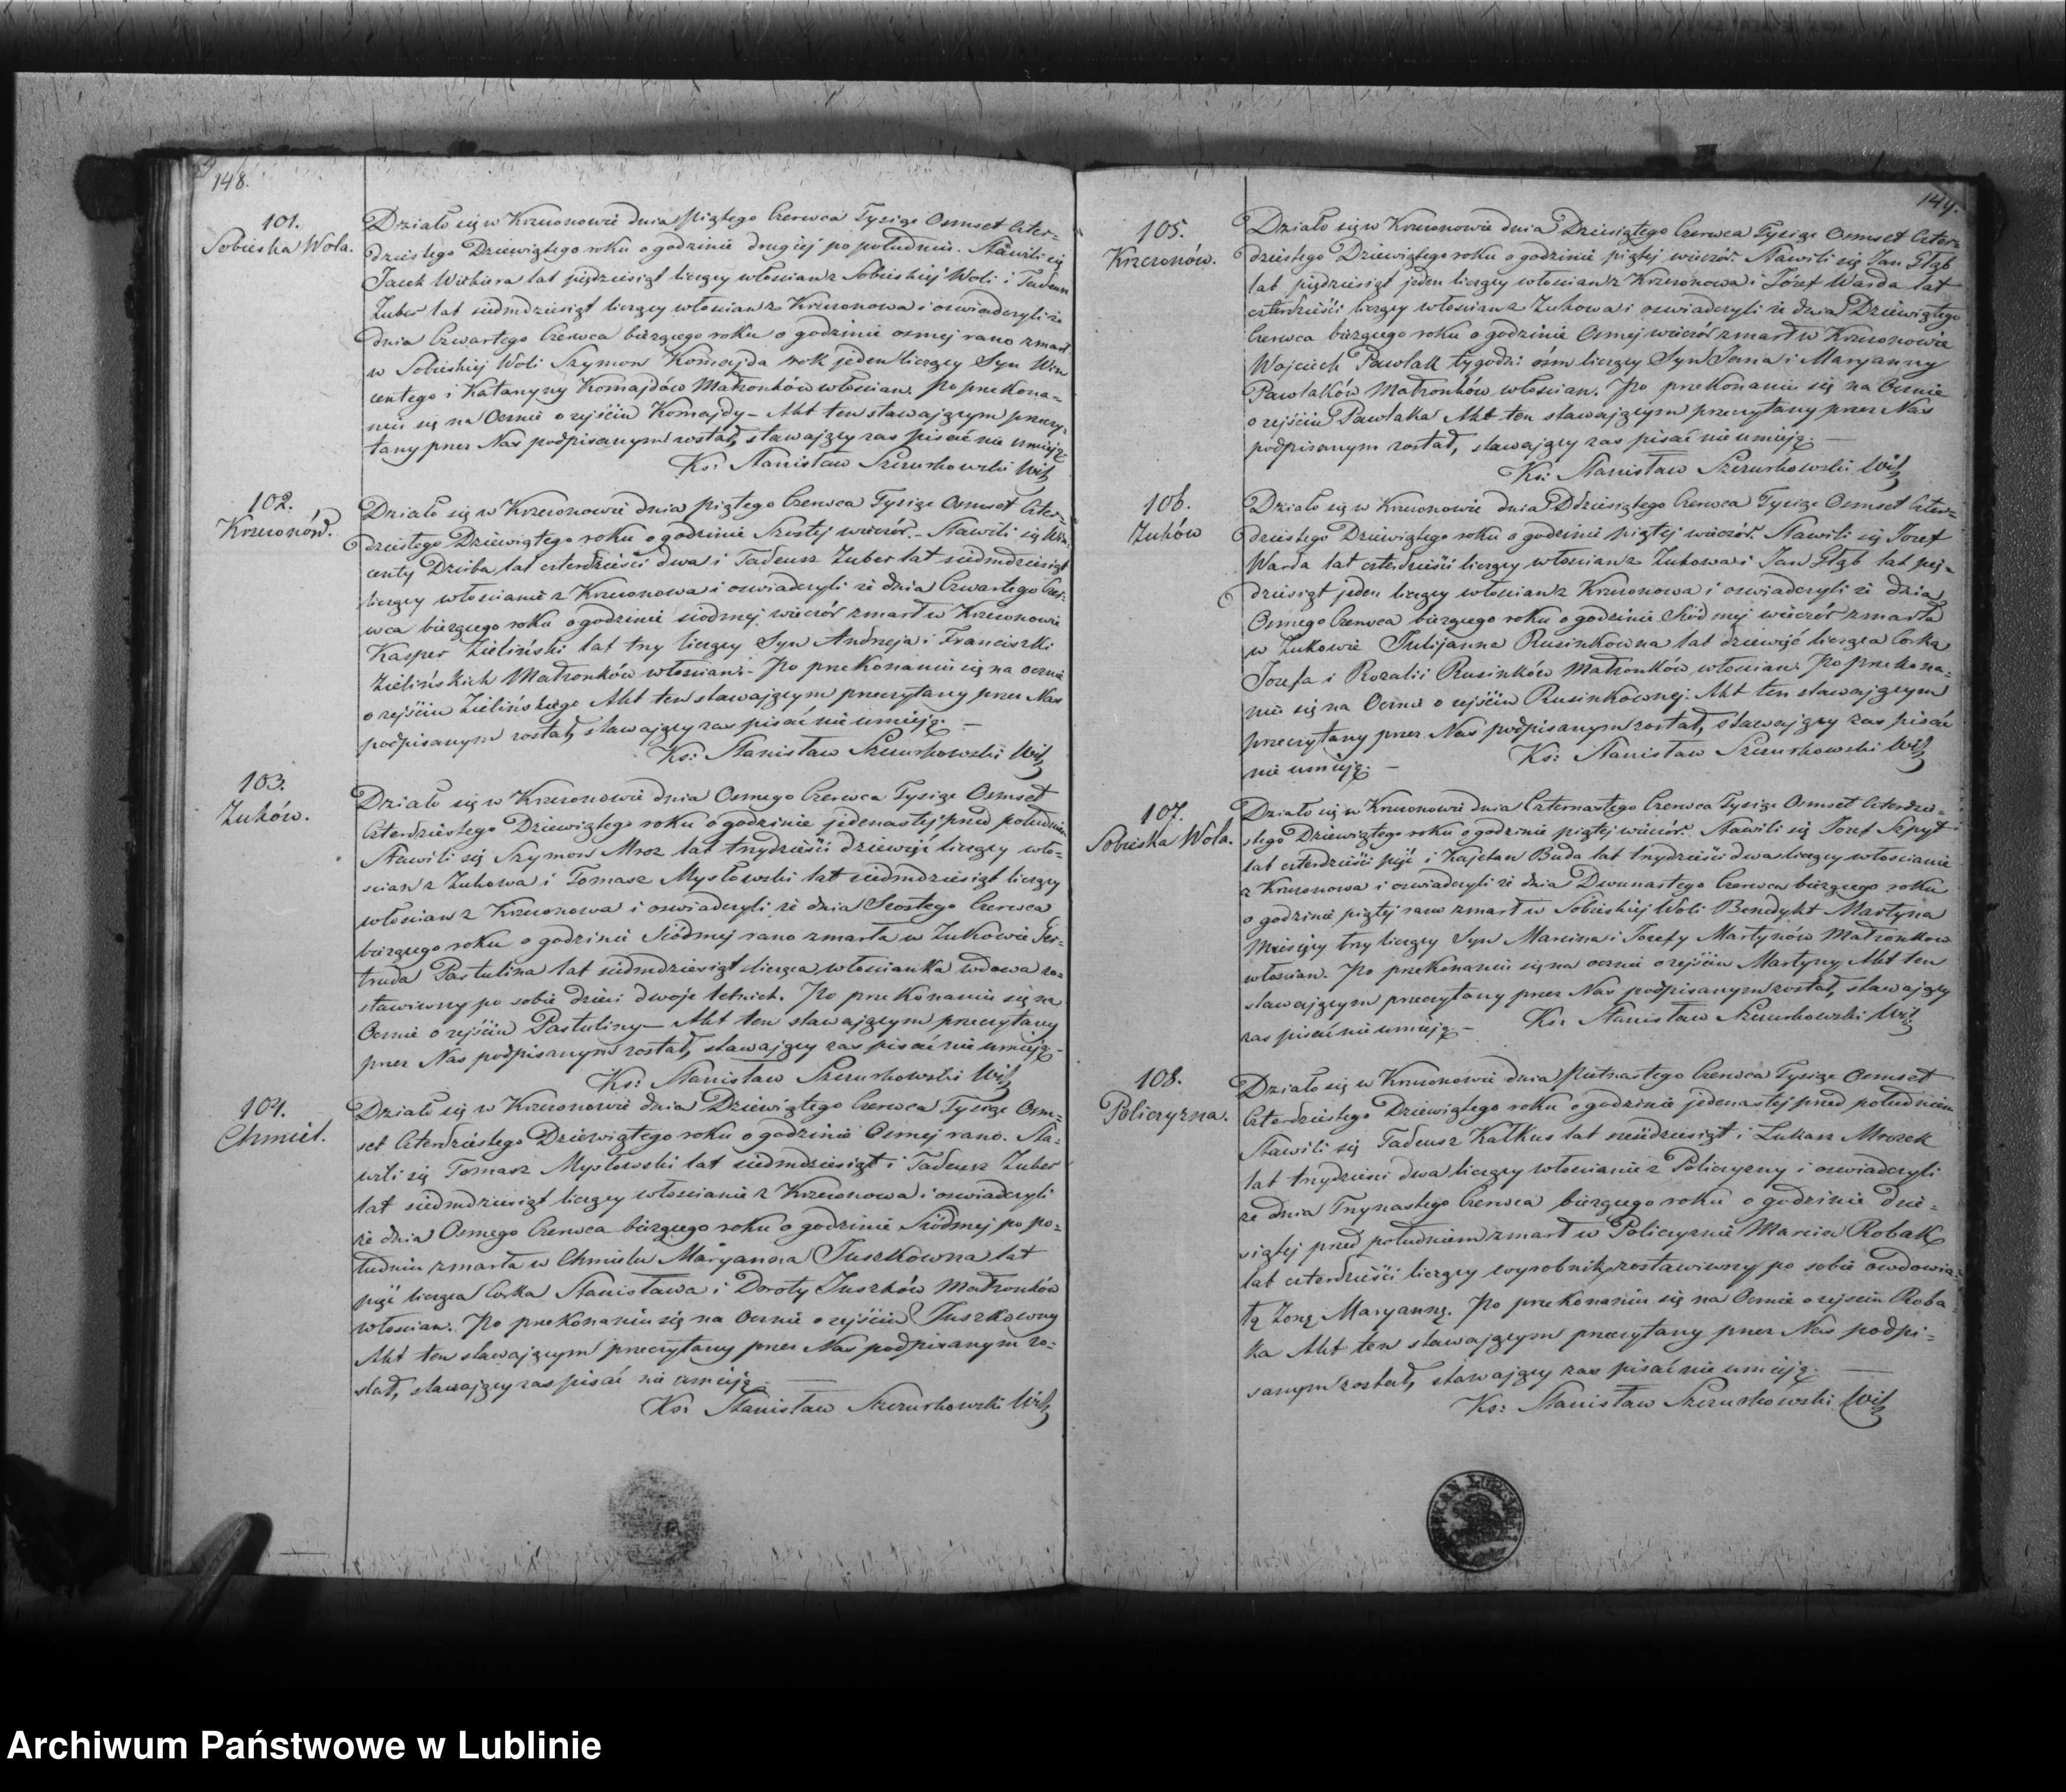 148.
101.
Sobieska Wola.
Działo się w Krzczonowie dnia piątego Czerwca Tysiąc Osmset Czter=
dziestego Dziewiątego roku o godzinie drugiej po południu. Stawili się
Jacek Wichura lat pięćdziesiąt liczący włościan z Sobieskiej Woli i Tadeusz
Zuber lat siedmdziesiąt liczący włościan z Krzczonowa i oswiadczyli że
dnia Czwartego Czerwca bieżącego roku o godzinie osmej rano zmarł
w Sobieskiej Woli Szymon Komajda rok jeden liczący Syn Win
centego i Katarzyny Komajdów Małżonków włościan. Po przekona=
niu się na Ocznie o zejściu Komajdy – Akt ten stawającym przeczy=
tany przez Nas podpisanym został, stawający zas pisać nie umieją
Ks: Stanisław Szczurkowski Wik
102.
Krzczonów.
Działo się w Krzczonowie dnia piątego Czerwca Tysiąc Osmset Czter=
dziestego Dziewiątego roku o godzinie Szostej wieczór. – Stawili się Win=
centy Dziuba lat czterdzieści dwa i Tadeusz Zuber lat siedmdziesiąt
liczący włościanie z Krzczonowa i oswiadczyli że dnia Czwartego Czer=
wca bieżącego roku o godzinie siodmej wieczór zmarł w Krzczonowie
Kasper Zieliński lat trzy liczący Syn Andrzeja i Franciszki
Zielińskich Małżonków włościan. – Po przekonaniu się na ocznie
o zejściu Zielińskiego Akt ten stawającym przeczytany przez Nas
podpisanym został, stawający zas pisać nie umieją. –
Ks: Stanisław Szczurkowski Wik
103.
Zuków.
Działo się w Krzczonowie dnia Osmego Czerwca Tysiąc Osmset
Czterdziestego Dziewiątego roku o godzinie jedenastej przed południem
Stawili się Szymon Mroz lat trzydzieści dziewięć liczący wło=
scian z Zukowa i Tomasz Mysłowski lat siedmdziesiąt liczący
włościan z Krzczonowa i oswiadczyli że dnia Szostego Czerwca
bieżącego roku o godzinie Siódmej rano zmarła w Zukowie Ger=
truda Pastulina lat siedmdziesiąt licząca włościanka wdowa zo=
stawiwszy po sobie dzieci dwoje letnich. Po przekonaniu się na
Ocznie o zejściu Pastuliny – Akt ten stawającym przeczytany
przez Nas podpisanym został, stawający zas pisać nie umieją –
Ks: Stanisław Szczurkowski Wik
104.
Chmiel.
Działo się w Krzczonowie dnia Dziewiątego Czerwca Tysiąc Osm=
set Czterdziestego Dziewiątego roku o godzinie Osmej rano. Sta=
wili się Tomasz Mysłowski lat siedmdziesiąt i Tadeusz Zuber
lat siedmdziesiąt liczący włościanie z Krzczonowa i oswiadczyli
że dnia Osmego Czerwca bieżącego roku o godzinie Siódmej po po=
łudniu zmarła w Chmielu Maryanna Juszkówna lat
pięć licząca Corka Stanisława i Doroty Juszków Małżonków
włościan. Po przekonaniu się na Ocznie o zejściu Juszkówny
Akt ten stawającym przeczytany przez Nas podpisanym zo=
stał, stawający zas pisać nie umieją. –
Ks: Stanisław Szczurkowski Wik
149.
105.
Krzczonów.
Działo się w Krzczonowie dnia Dziesiątego Czerwca Tysiąc Osmset Czter=
dziestego Dziewiątego roku o godzinie piątej wieczór. Stawili się Jan Głąb
lat pięćdziesiąt jeden liczący włościan z Krzczonowa i Józef Warda lat
czterdzieści liczący włościan z Zukowa i oswiadczyli że dnia Dziewiątego
Czerwca bieżącego roku o godzinie Osmej wieczór zmarł w Krzczonowie
Wojciech Pawlak tygodni ósm liczący Syn Jana i Maryanny
Pawlaków Małżonków włościan. Po przekonaniu się na Ocznie
o zejściu Pawlaka Akt ten stawającym przeczytany przez Nas
podpisanym został, stawający zas pisać nie umieją. –
Ks: Stanisław Szczurkowski Wik
106.
Zuków
Działo się w Krzczonowie dnia Dziesiątego Czerwca Tysiąc Osmset Czter=
dziestego Dziewiątego roku o godzinie piątej wieczór. Stawili się Jozef
Warda lat czterdzieści liczący włościan z Zukowa i Jan Głąb lat pięć=
dziesiąt jeden liczący włościan z Krzczonowa i oswiadczyli że dnia
Osmego Czerwca bieżącego roku o godzinie Siódmej wieczór zmarła
w Zukowie Julijanna Rusinkówna lat dziewięć licząca Corka
Jozefa i Rozalii Rusinków Małżonków włościan. Po przekona=
niu się na Ocznie o zejściu Rusinkównej. Akt ten stawającym
przeczytany przez Nas podpisanym został, stawający zas pisać
nie umieją. –
Ks: Stanisław Szczurkowski Wik
107.
Sobieska Wola.
Działo się w Krzczonowie dnia Czternastego Czerwca Tysiąc Osmset Czterdzie=
stego Dziewiątego roku o godzinie piątej wieczór. Stawili się Jozef Szpyt
lat czterdzieści pięć i Kajetan Buda lat trzydzieści dwa liczący włościanie
z Krzczonowa i oswiadczyli że dnia Dwunastego Czerwca bieżącego roku
o godzinie piątej rano zmarł w Sobieskiej Woli Benedykt Martyna
Miesięcy trzy liczący Syn Marcina i Jozefy Martynów Małżonków
włościan. Po przekonaniu się na ocznie o zejściu Martyny Akt ten
stawającym przeczytany przez Nas podpisanym został, stawający
zas pisać nie umieją –
Ks: Stanisław Szczurkowski Wik
108.
Policzyzna.
Działo się w Krzczonowie dnia Pietnastego Czerwca Tysiąc Osmset
Czterdziestego Dziewiątego roku o godzinie jedenastej przed południem
Stawili się Tadeusz Kałkus lat sześćdziesiąt i Lukasz Mrozek
lat trzydzieści dwa liczący włościanie z Policzyzny i oswiadczyli
że dnia Trzynastego Czerwca bieżącego roku o godzinie dzie=
siątej przed południem zmarł w Policzyznie Marcin Robak
lat czterdzieści liczący wyrobnik zostawiwszy po sobie owdowia=
łą Żonę Maryannę. Po przekonaniu się na Ocznie o zejściu Roba=
ka Akt ten stawającym przeczytany przez Nas podpi=
sanym został, stawający zas pisać nie umieją. –
Ks: Stanisław Szczurkowski Wik
Archiwum Państwowe w Lublinie